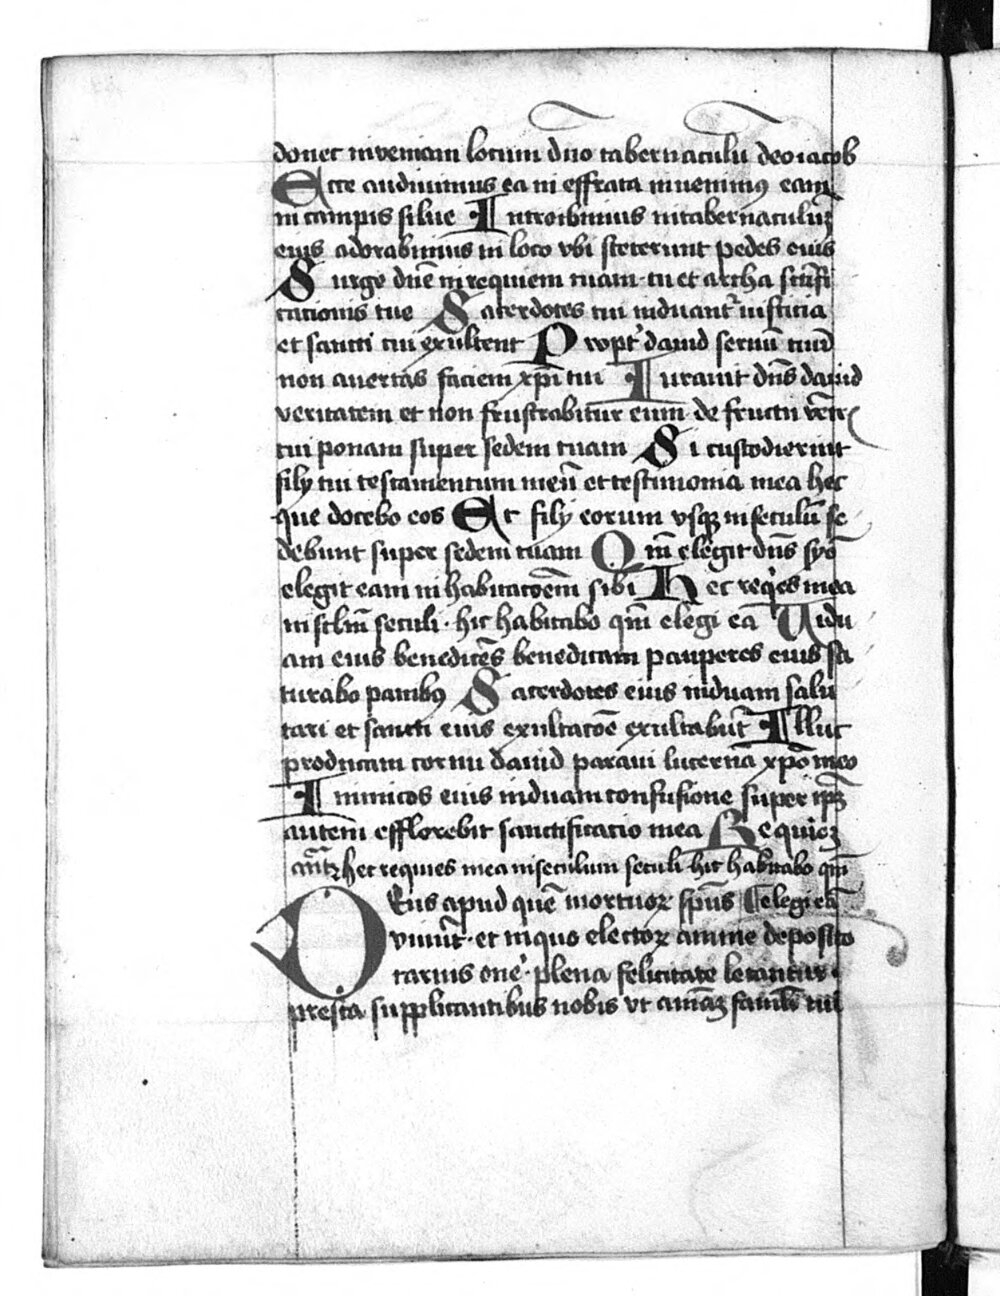 donec inveniam locum dn̄o tabernaculū deo iacob
Ecce audiuimus ea in effrata inuenimꝰ eam
in campis silue Introibimus in tabernaculuꝫ
eius adorabimus in loco vbi steterunt pedes eius
Surge dn̄e in requiem tuam · tu et archa sc̄ifi
cationis tue Sacerdotes tui induant᷑ iusticia
et sancti tui exultent Propt᷑ dauid seruū tuū
non auertas faciem xp̄i tui Iurauit dn̄s dauid
veritatem et non frustrabitur eum · de fructu vēt᷑
tui ponam super sedem tuam Si custodierint
filij tui testamentum meū et testimonia mea hec
que docebo eos Et filij eorum vsqꝫ in seculū se
debunt super sedem tuam Qm̄ elegit dn̄s syō
elegit eam in habitatōēm sibi Hec req̇es mea
in sc̄lm̄ seculi · hic habitabo qm̄ elegi eā Uidu
am eius benedicēs benedicam pauperes eius sa
turabo panibꝰ Sacerdotes eius induam salu
tari et sancti eius exultatōe exultabūt Illuc
producam cornu dauid paraui lucernā xp̄o meo
Inimicos eius induam confusione super ip̄ꝫ
autem efflorebit sanctificatio mea Requieꝫ
an̄ Hec requies mea in seculum seculi hic habitabo qm̄
Deus apud quē mortuoꝝ sp̄ūs ¶ elegi eā
viuūt · et in quo electoꝝ anime deposito
carnis on̄e᷑ · plena felicitate letantur ·
presta supplicantibus nobis vt aīaꝫ famli tui